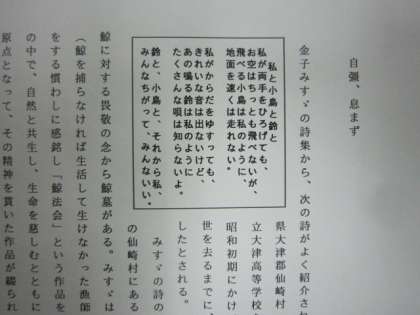 自彊、息まず
金子みすゞの詩集から、次の詩がよく紹介され
私と小鳥と鈴と
私が両手をひろげても、
お空はちっとも飛べないが、
飛べる小鳥は私のように、
地面を速くは走れない。
私がからだをゆすっても、
きれいな音は出ないけど、
あの鳴る鈴は私のように
たくさんな唄は知らないよ。
鈴と、小鳥と、それから私、
みんなちがって、みんないい。
県大津郡仙崎村
立大津高等学校
昭和初期にかけ
世を去るまでに
したとされる。
みすゞの詩の
の仙崎村にある
鯨に対する畏敬の念から鯨墓がある。みすゞは
(鯨を捕らなければ生活して生けなかった漁師
をする慣わしに感銘し「鯨法会」という作品を
の中で、自然と共生し、生命を慈しむとともに
原点となって、その精神を貫いた作品が綴られ